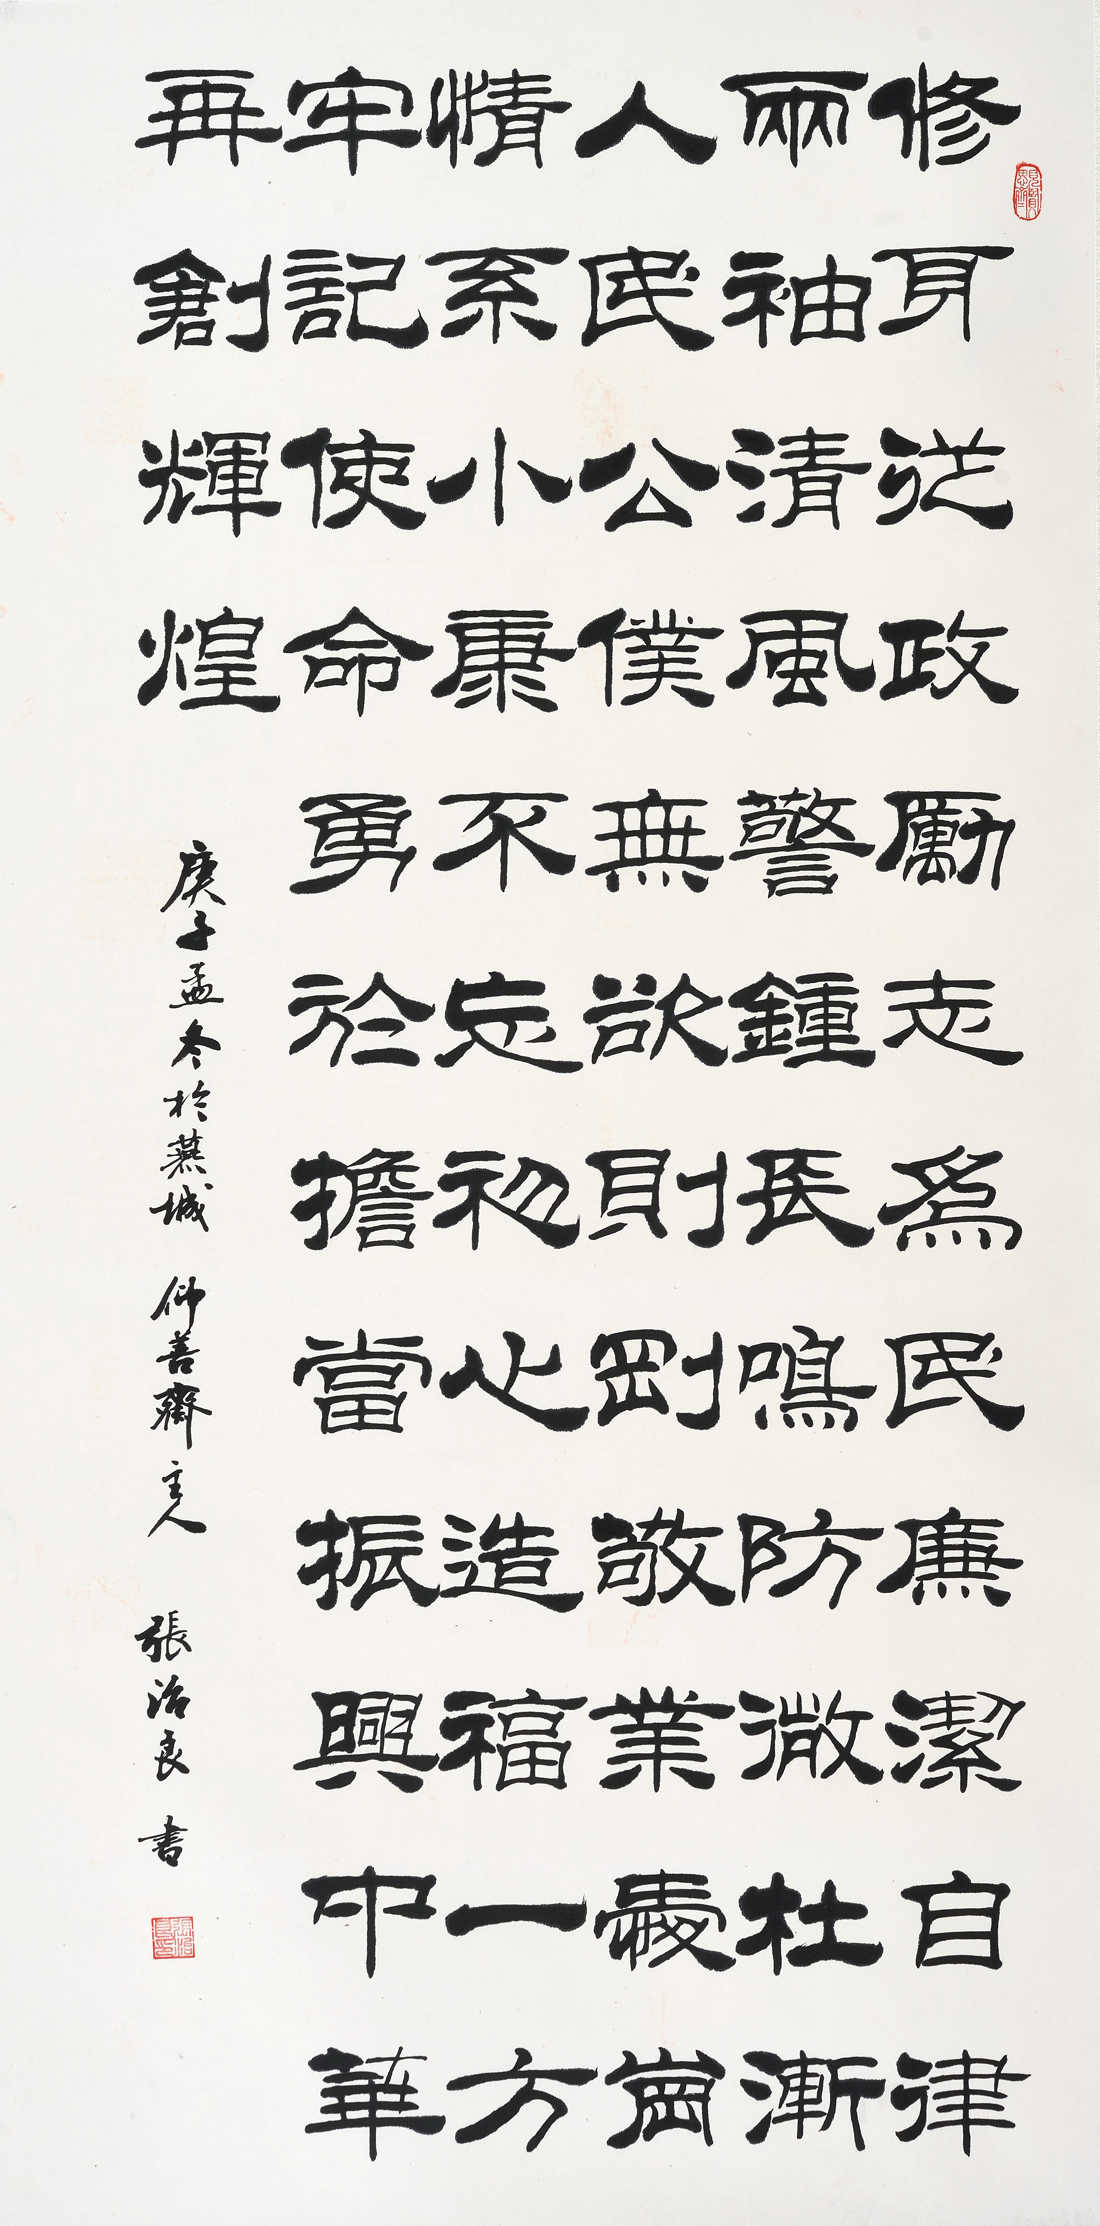 修身從政勵志爲民廉潔自律
兩袖清風警鍾長鳴防微杜漸
人民公僕無欲則剛敬業愛崗
情系小康不忘初心造福一方
牢記使命勇於擔當振興中華
再創輝煌
庚子孟冬於燕城 仰善齋主人 張治良 書
見賢思齊
張治良印